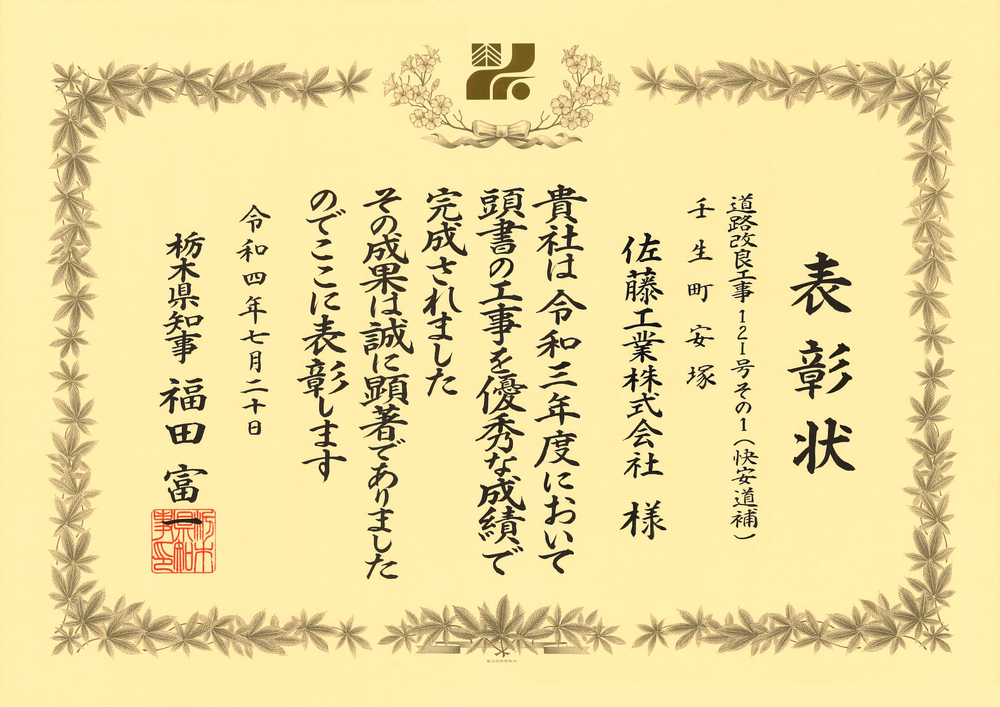 表彰状
道路改良工事121号その1(快安道補)
壬生町安塚
佐藤工業株式会社 様
貴社は令和三年度において
頭書の工事を優秀な成績で
完成されました
その成果は誠に顕著でありました
のでここに表彰します
令和四年七月二十日
栃木県知事 福田富一
栃木県知事印